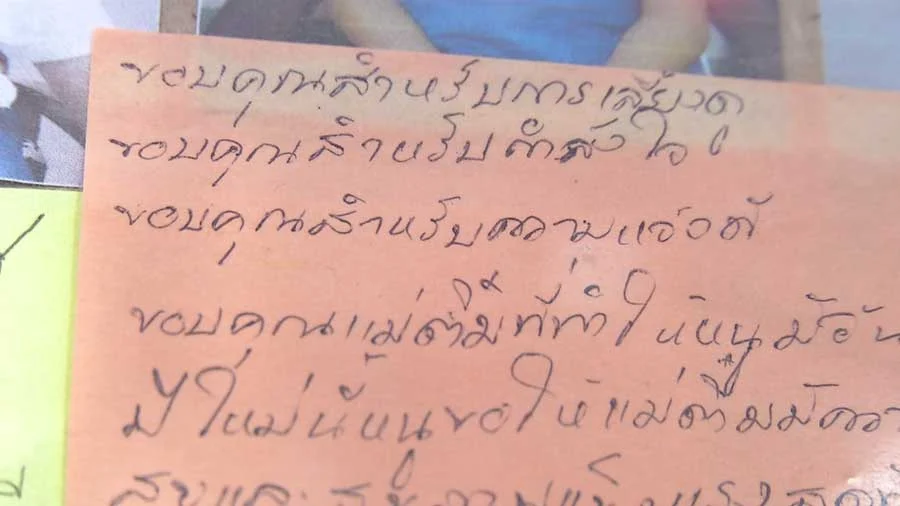 ขอบคุณสำหรับการเลี้ยงดู
ขอบคุณสำหรับกำลังใจ
ขอบคุณสำหรับความ
ขอบคุณแม่ต่ายที่ทำให้หนูมีวัน
ปีใหม่นี้หนูขอให้แม่ต่ายมีความ
สุขและสุขภาพแข็งแรง